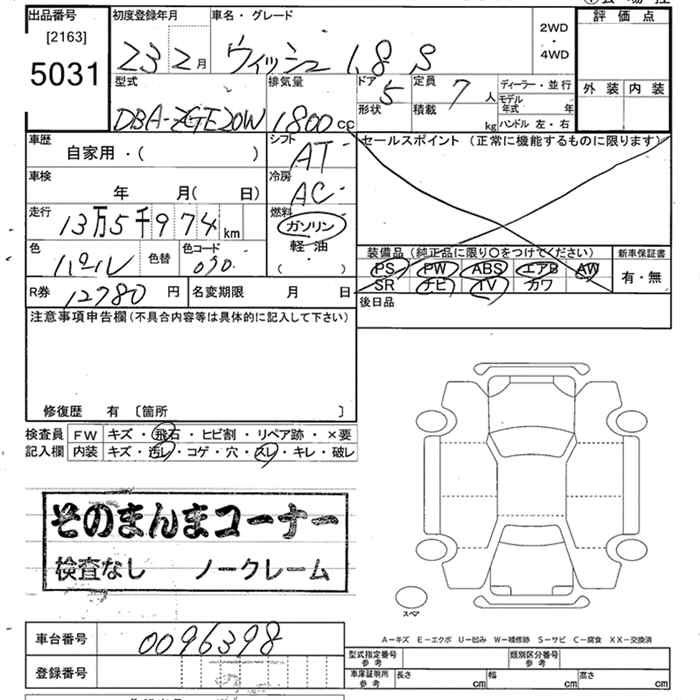 出品番号
[2163]
5031
初度登録年月 車名・グレード
23 2月 ウィッシュ 1.8 S
2WD
・
4WD
評価点
外装 内装
型式 排気量 ドア 定員
DBA-ZGE20W 1800cc
5 7人
形状 積載 kg
ディーラー・並行
モデル年式 年
ハンドル 左・右
車歴
自家用・( )
シフト
AT
セールスポイント (正常に機能するものに限ります)
車検
年 月( 日)
冷房
AC
走行
13万5千974km
燃料
ガソリン
軽油
( )
色 色替 色コード
パール 070
装備品 (純正品に限り〇をつけてください) 新車保証書
PS PW ABS エアB AW
SR ナビ TV カワ
有・無
R券 12780円 名変期限 月 日
後日品
注意事項申告欄(不具合内容等は具体的に記入して下さい)
修復歴 有 〔箇所 〕
検査員 FW キズ・飛石・ヒビ割・リペア跡・×要
記入欄 内装 キズ・汚レ・コゲ・穴・スレ・キレ・破レ
そのまんまコーナー
検査なし ノークレーム
スペア
A―キズ E―エクボ U―凹み W―補修跡 S―サビ C―腐食 XX―交換済
車台番号 0096398
登録番号
型式指定番号 参考 類別区分番号 参考
車庫証明所 参考 長さ cm 幅 cm 高さ cm